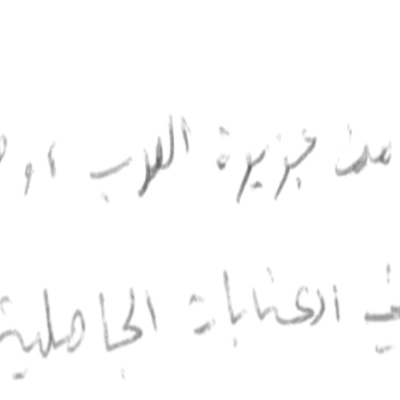 من جزيرة العرب أو
في الكتابات الجاهلية